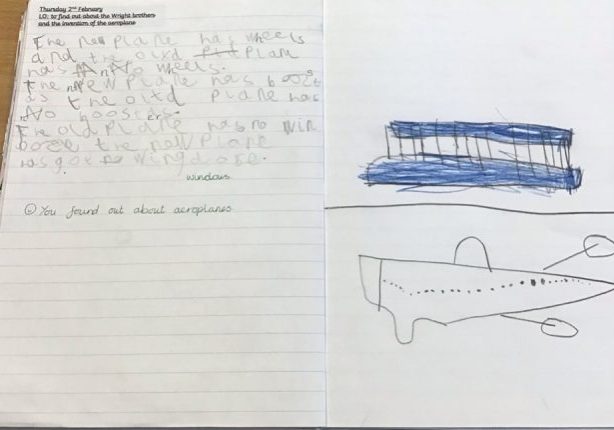 Thursday 2nd February
LO: to find out about the Wright brothers
and the invention of the aeroplane
The new Plane has wheels
and the oltd PLane
has No wheels.
the new Plane has boost
is the oltd Plane has
No boosters
The old Plane has no win
the new Plane
has got
windows
You found out about aeroplanes